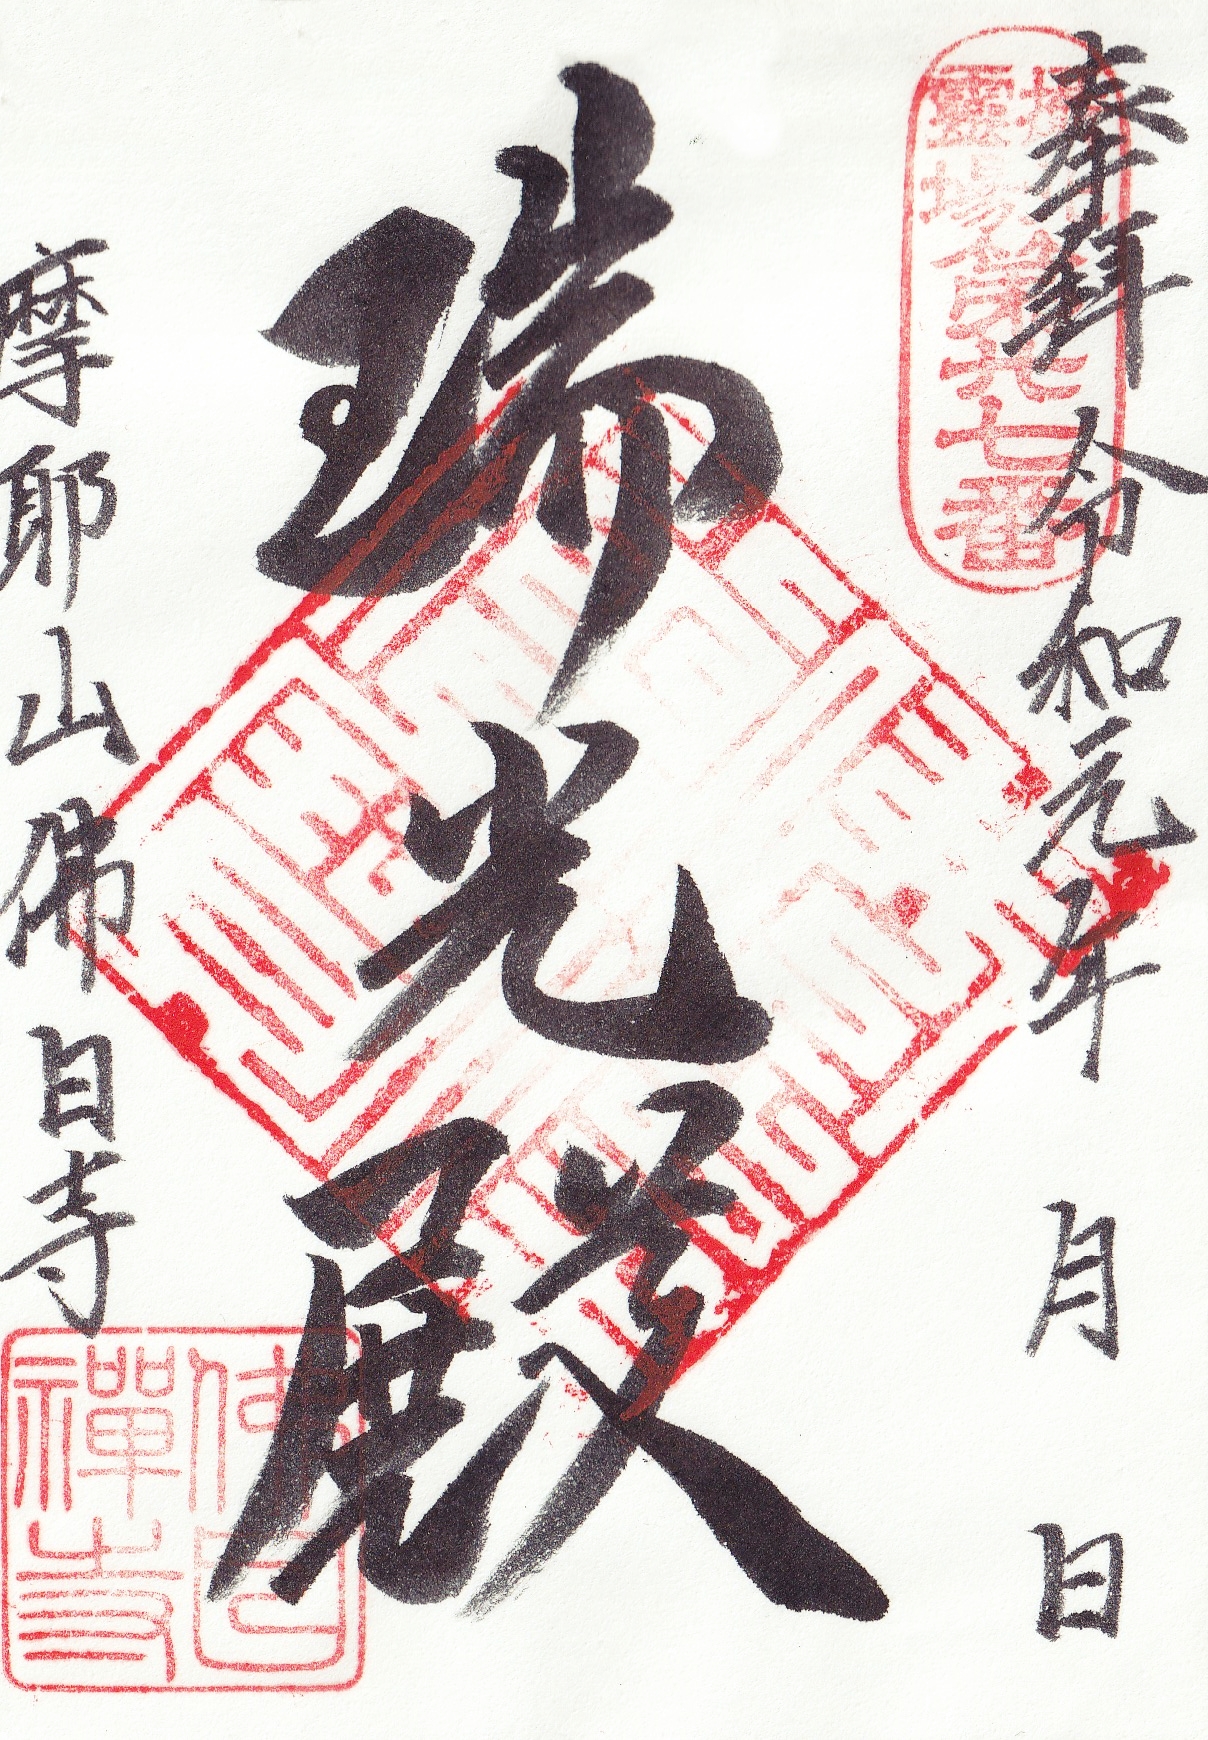 奉拜 令和元年 月 日
靈場第廿七番
瑞光殿
摩耶山佛日寺
佛日
禪寺